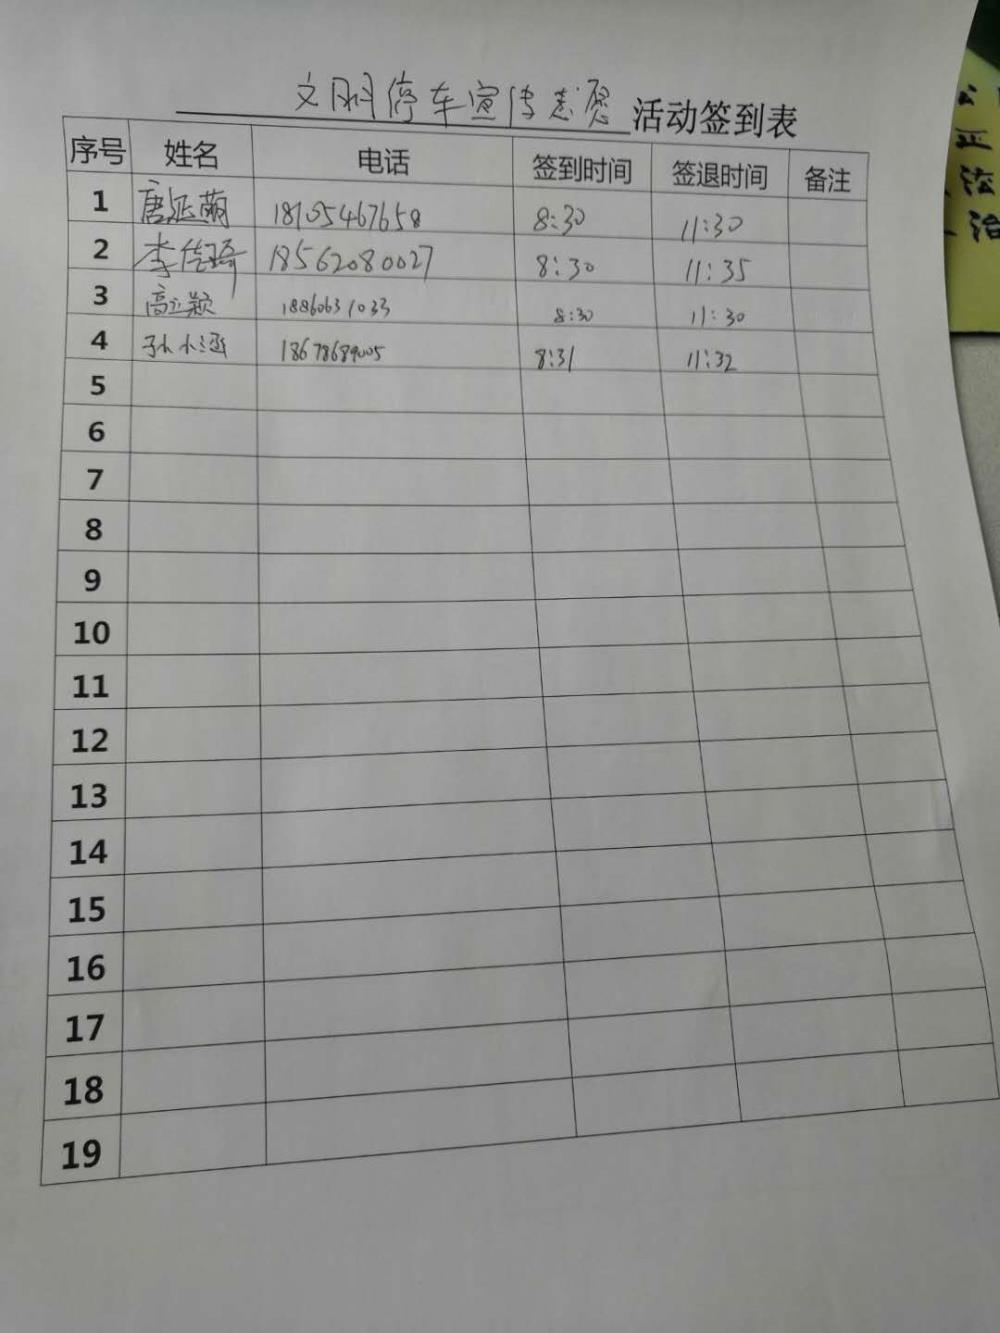 文明停车宣传志愿活动签到表
序号 姓名 电话 签到时间 签退时间 备注
1 唐延萌 18105467658 8:30 11:30
2 李佳琦 18562080027 8:30 11:35
3 高立颖 18860631033 8:30 11:30
4 孙小涵 18678689005 8:31 11:32
5
6
7
8
9
10
11
12
13
14
15
16
17
18
19
正
治